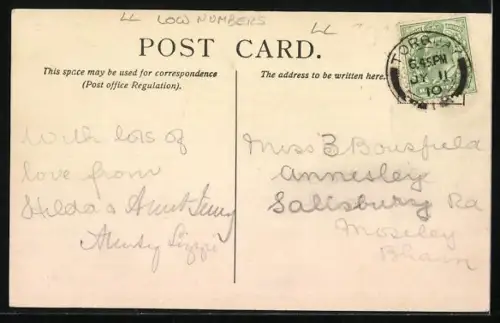 LL LOW NUMBERS LL
POST CARD.
This space may be used for correspondence
(Post office Regulation).
The address to be written here.
TORQUAY
6.45PM
JY 11
10
With lots of
love from
Hilda & Aunt Jenny
Aunty Lizzie
Miss B Bousfield
Annesley
Salisbury Rd
Moseley
Bham